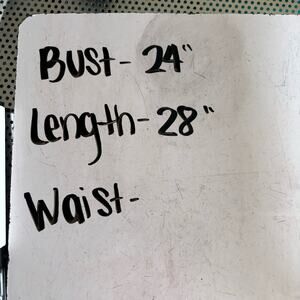 Bust- 24"
Length- 28"
Waist-